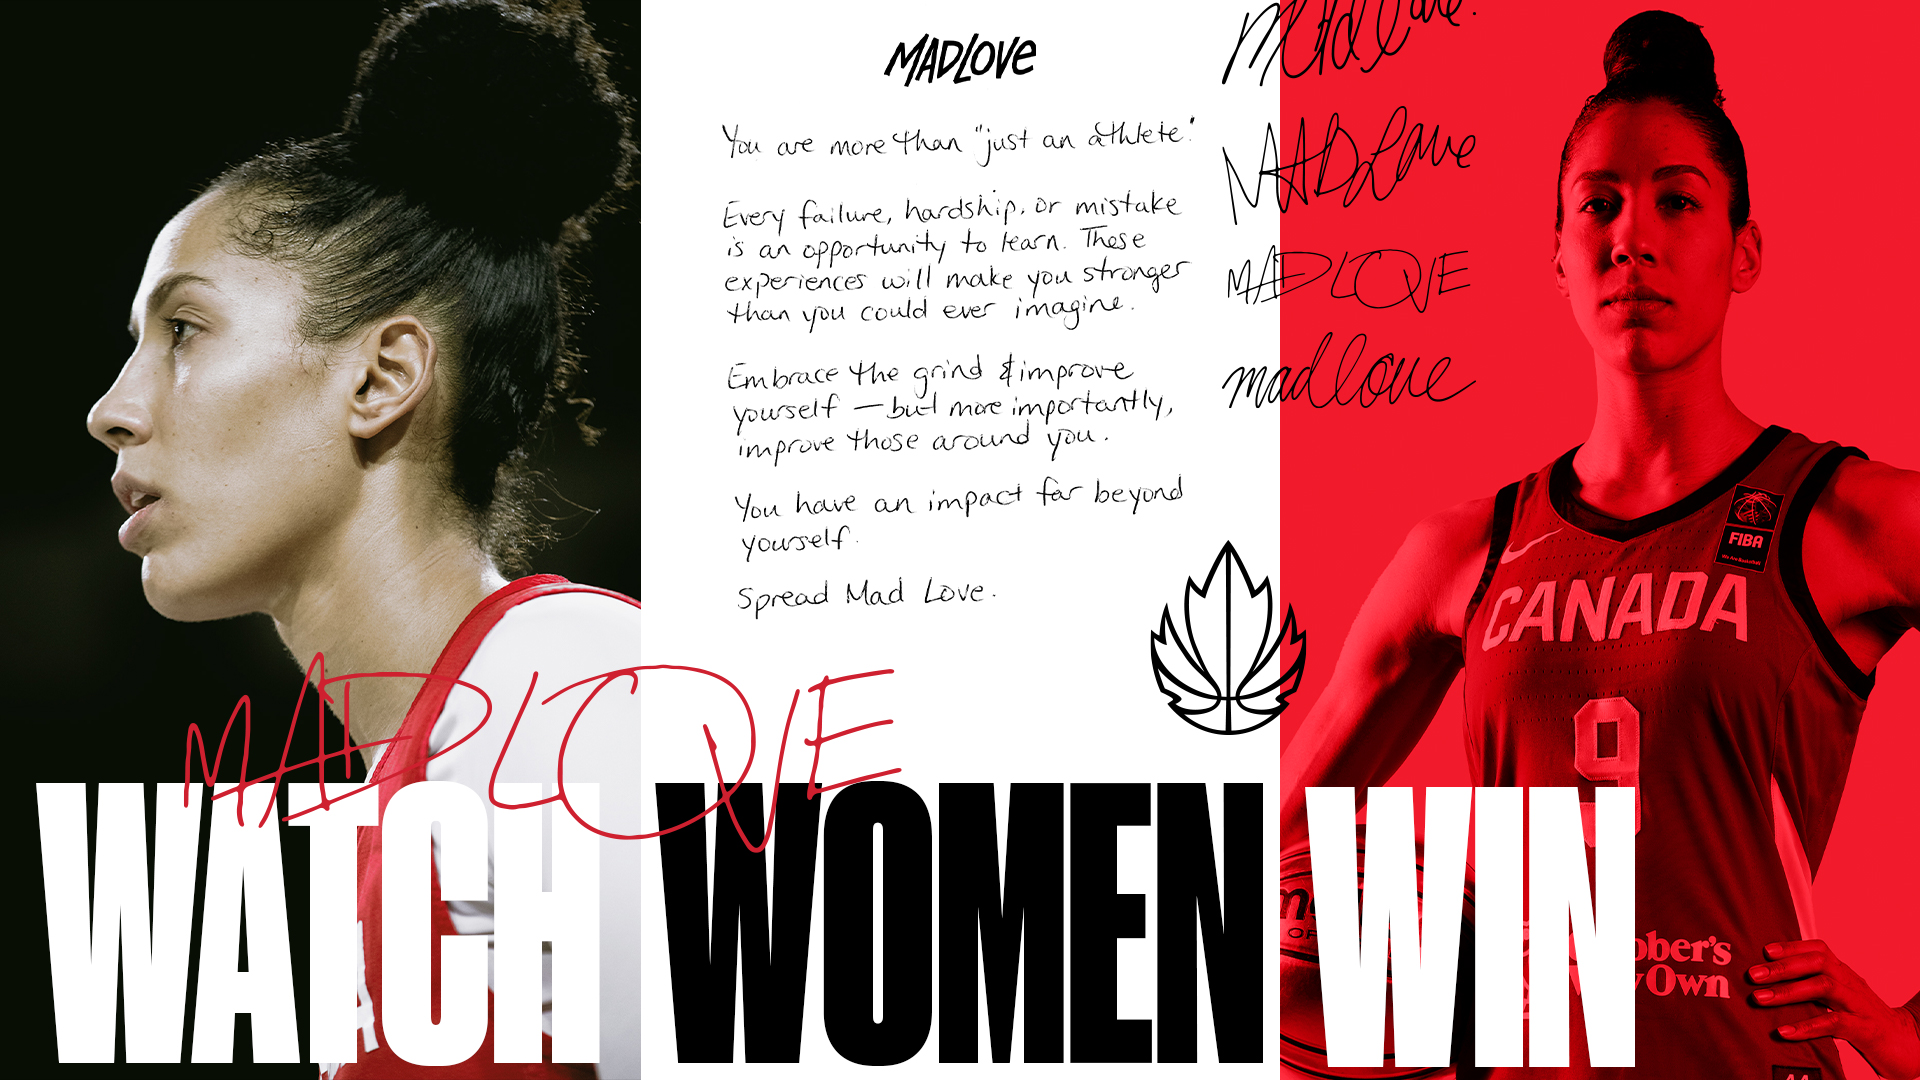 MADLOVE
You are more than "just an athlete."
Every failure, hardship, or mistake
is an opportunity to learn. These
experiences will make you stronger
than you could ever imagine.
Embrace the grind & improve
yourself — but more importantly,
improve those around you.
You have an impact far beyond
yourself.
Spread Mad Love.
Mad Love.
MADLove
MADLOVE
madlove
FIBA
We Are Basketball
CANADA
9
MADLOVE
WATCH WOMEN WIN
OF
Own